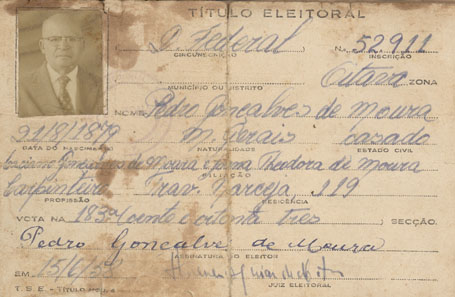 TÍTULO ELEITORAL
D. Federal Nº 52911
CIRCUNSCRIÇÃO INSCRIÇÃO
Oitava ZONA
MUNICÍPIO OU DISTRITO
NOME Pedro Gonçalves de Moura
21/8/1879 M. Gerais casado
DATA DO NASCIMENTO NATURALIDADE ESTADO CIVIL
Gonçalves de Moura e Theodora de Moura
FILIAÇÃO
Carpinteiro Trav. Narceja, 119
PROFISSÃO RESIDÊNCIA
VOTA NA 183ª cento e oitenta e tres SECÇÃO.
Pedro Gonçalve de Moura
ASSINATURA DO ELEITOR
EM 15/6/58
JUIZ ELEITORAL
T. S. E. - TÍTULO